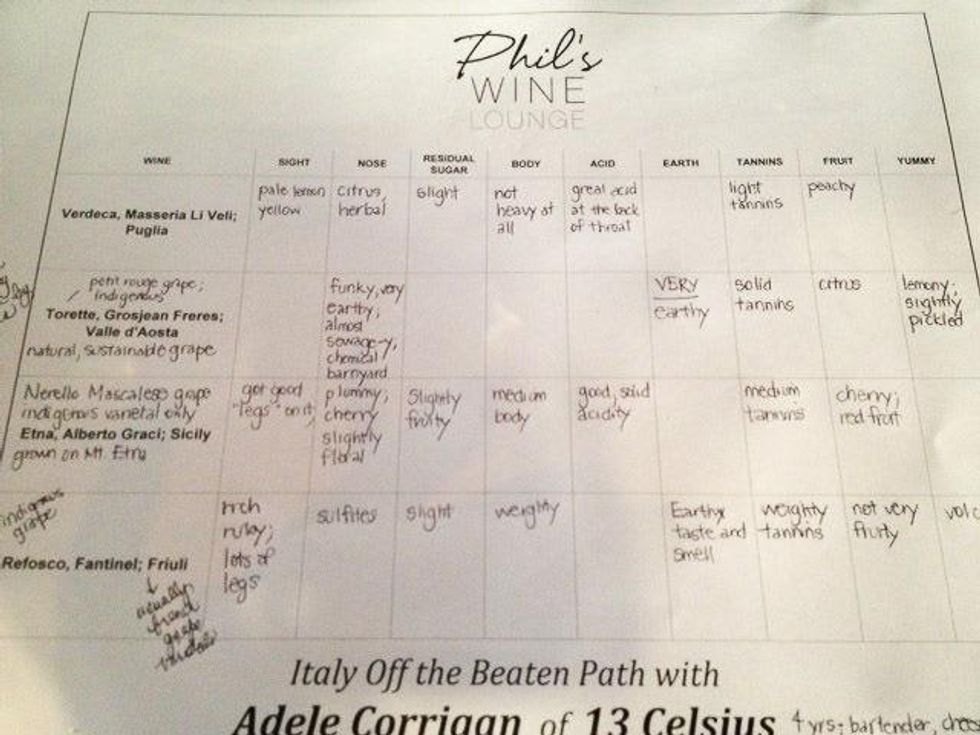 Phil's
WINE
LOUNGE
WINE SIGHT NOSE RESIDUAL SUGAR BODY ACID EARTH TANNINS FRUIT YUMMY
Verdeca, Masseria Li Veli;
Puglia
pale lemon
yellow
citrus,
herbal
slight
not
heavy at
all
great acid
at the back
of throat
light
tannins
peachy
petit rouge grape;
indigenous
Torette, Grosjean Freres;
Valle d'Aosta
natural, sustainable grape
funky, very
earthy;
almost
sewage-y,
chemical
barnyard
VERY
earthy
solid
tannins
citrus
lemony;
slightly
pickled
Nerello Mascalese grape
indigenous varietal only
Etna, Alberto Graci; Sicily
grown on Mt. Etna
got good
"legs" on it;
plummy;
cherry
slightly
floral
Slightly
fruity
medium
body
good, solid
acidity
medium
tannins
cherry;
red fruit
indigenous
grape
Refosco, Fantinel; Friuli
actually
french
grape
rich
ruby;
lots of
legs
sulfites
slight
weighty
Earthy
taste and
smell
weighty
tannins
not very
fruity
Italy Off the Beaten Path with
Adele Corrigan of 13 Celsius
4 yrs; bartender,